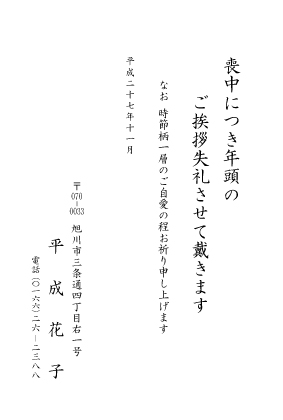 喪中につき年頭の
ご挨拶失礼させて戴きます
なお 時節柄一層のご自愛の程お祈り申し上げます
平成二十七年十一月
〒070-0033 旭川市三条通四丁目右一号
平成花子
電話(〇一六六)二六―二三八八